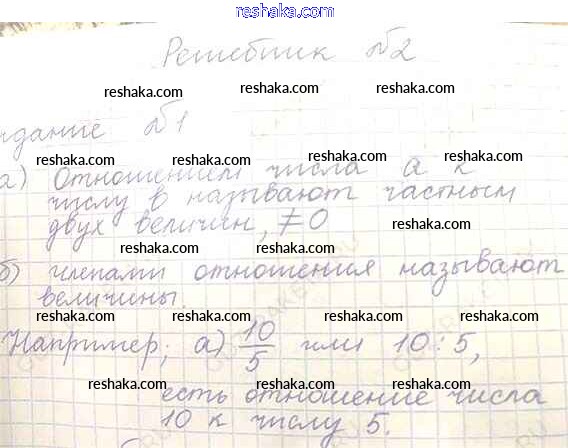 www.reshaka.com
Решебник №2
reshaka.com reshaka.com reshaka.com
задание №1
reshaka.com reshaka.com reshaka.com
а) Отношением числа а к
числу в называют частным
reshaka.com reshaka.com reshaka.com
двух величин, ≠0
reshaka.com
reshaka.com reshaka.com
б) членами отношения называют
величины.
reshaka.com reshaka.com reshaka.com
reshaka.com reshaka.com reshaka.com reshaka.com
Например; а) 10/5 или 10:5,
reshaka.com reshaka.com reshaka.com
есть отношение числа
10 к числу 5.
reshaka.com reshaka.com reshaka.com